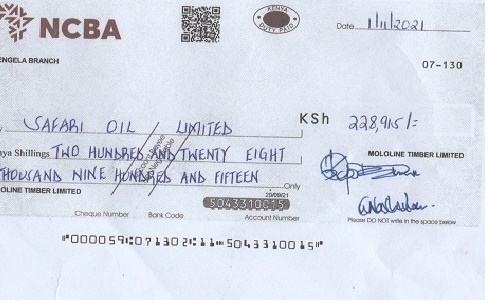 NCBA
KENYA
DUTY PAID
Date 1/11/2021
ENGELA BRANCH
07-130
SAFARI OIL LIMITED
KSh 228,915/=
ya Shillings TWO HUNDRED AND TWENTY EIGHT
THOUSAND NINE HUNDRED AND FIFTEEN Only
MOLOLINE TIMBER LIMITED
OLOLINE TIMBER LIMITED
20/09/21
5043310015
Cheque Number Bank Code Account Number
Please DO NOT write in the space below
"000059⑆071302⑆11⑈5043310015⑈